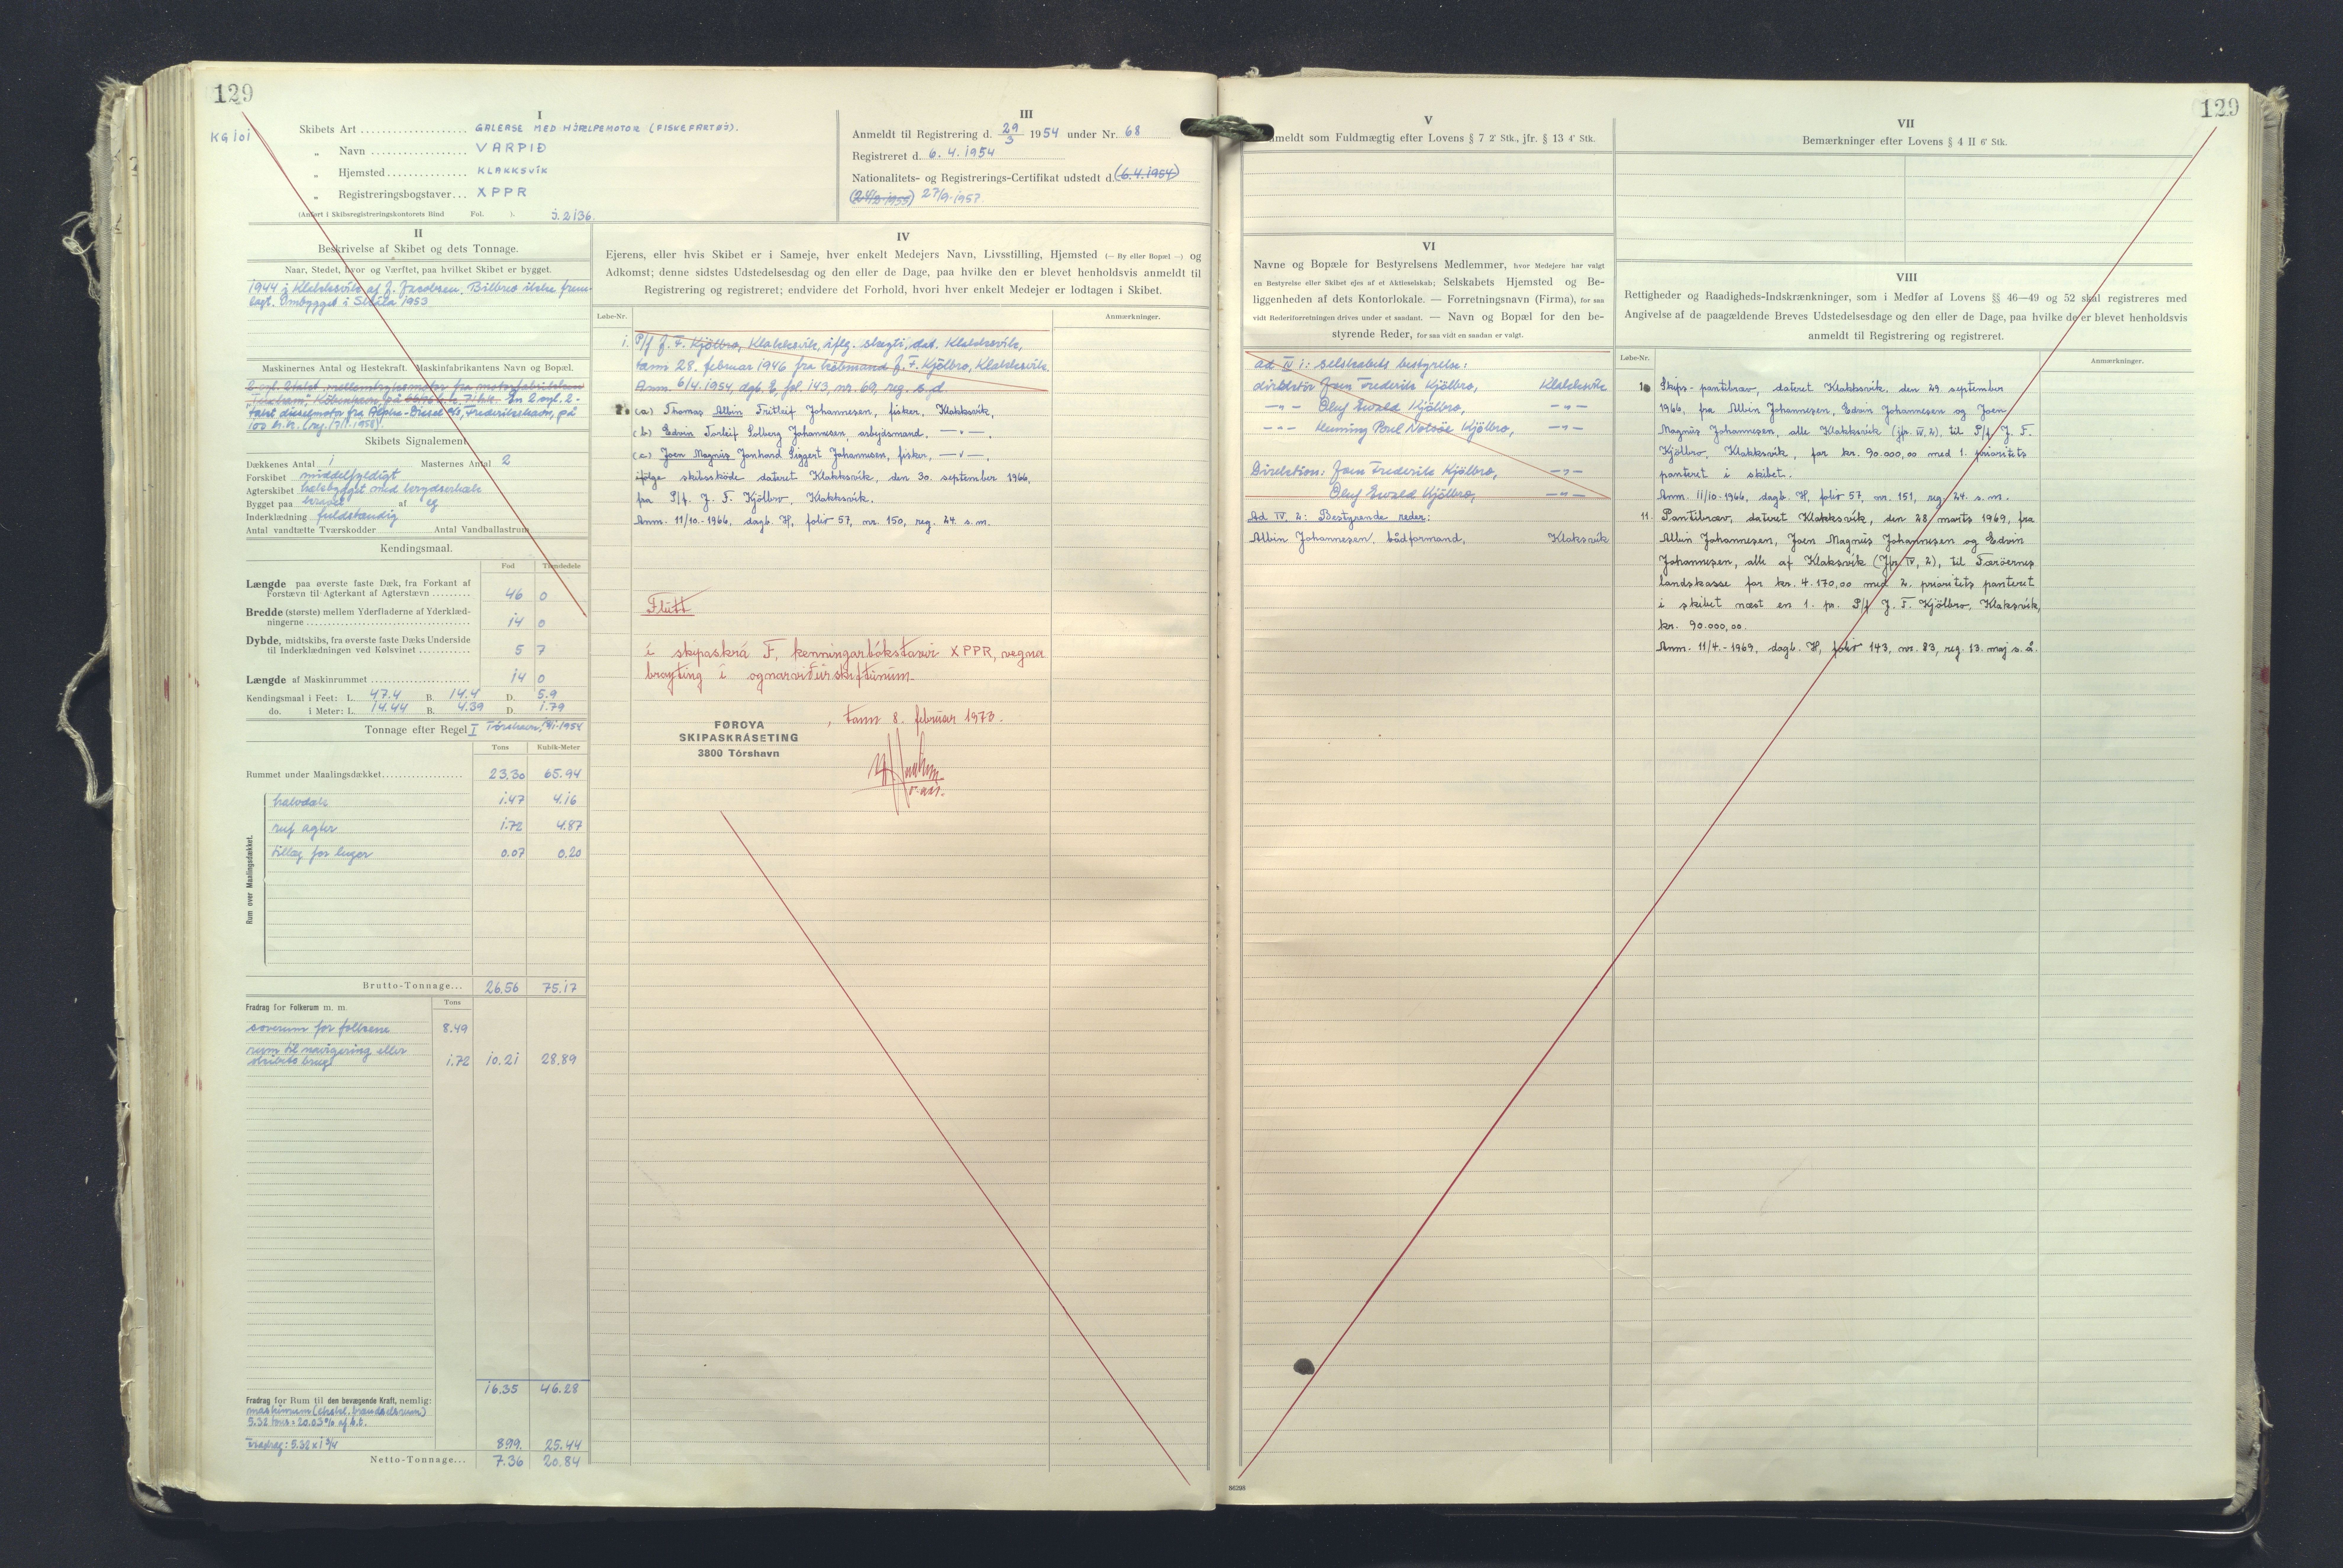 129
KG 101
I
Skibets Art GALEASE MED HJÆLPEMOTOR (FISKEFARTØJ).
„ Navn VARPIÐ
„ Hjemsted KLAKKSVÍK
„ Registreringsbogstaver XPPR
(Anført i Skibsregistreringskontorets Bind Fol. ). j. 2136.
III
Anmeldt til Registrering d. 29/3 1954 under Nr. 68
Registreret d. 6. 4. 1954
Nationalitets- og Registrerings-Certifikat udstedt d. (6.4.1954)
27/9. 1957.
II
Beskrivelse af Skibet og dets Tonnage.
Naar, Stedet, hvor og Værftet, paa hvilket Skibet er bygget.
1944 i Klakksvík af J. Jacobsen. Bilbrev ikke frem-
lagt. Ombygget i Skála 1953
Maskinernes Antal og Hestekraft. Maskinfabrikantens Navn og Bopæl.
2 cyl. 2takt mellemtryksmotor fra motorfabrikken
En 2 cyl. 2-
takt dieselmotor fra Alpha-Diesel a/s, Frederikshavn, på
100 h.k.
Skibets Signalement
Dækkenes Antal 1 Masternes Antal 2
Forskibet middelfyldigt
Agterskibet hækbygget med krydserhæk
Bygget paa kravel af eg
Inderklædning fuldstændig
Antal vandtætte Tværskodder Antal Vandballastrum
Kendingsmaal.
Fod Tiendedele
Længde paa øverste faste Dæk, fra Forkant af
Forstævn til Agterkant af Agterstævn 46 0
Bredde (største) mellem Yderfladerne af Yderklæd-
ningerne 14 0
Dybde, midtskibs, fra øverste faste Dæks Underside
til Inderklædningen ved Kølsvinet 5 7
Længde af Maskinrummet 14 0
Kendingsmaal i Feet: L. 47.4 B. 14.4 D. 5.9
do. i Meter: L. 14.44 B. 4.39 D. 1.79
Tonnage efter Regel I Tórshavn, 1954
Tons Kubik-Meter
Rummet under Maalingsdækket 23.30 65.94
Rum over Maalingsdækket.
halvdæk 1.47 4.16
ruf agter 1.72 4.87
tillæg for luger 0.07 0.20
Brutto-Tonnage... 26.56 75.17
Fradrag for Folkerum m. m. Tons
soverum for folkene 8.49
rum til navigering eller
skibets brug 1.72 10.21 28.89
16.35 46.28
Fradrag for Rum til den bevægende Kraft, nemlig:
maskinrum (ekskl. brændselsrum)
5.32 tons = 20.03% af b.t.
Fradrag: 5.32 x 1 3/4 8.99. 25.44
Netto-Tonnage... 7.36 20.84
IV
Ejerens, eller hvis Skibet er i Sameje, hver enkelt Medejers Navn, Livsstilling, Hjemsted (— By eller Bopæl —) og
Adkomst; denne sidstes Udstedelsesdag og den eller de Dage, paa hvilke den er blevet henholdsvis anmeldt til
Registrering og registreret; endvidere det Forhold, hvori hver enkelt Medejer er lodtagen i Skibet.
Løbe-Nr. Anmærkninger.
1. P/f J. F. Kjölbro, Klakksvík, iflg. skøgti, dat. Klakksvík,
tann 28. februar 1946 fra kebmand J. F. Kjölbro, Klakksvík.
Anm. 6/4. 1954, dagb. E, fol. 143, nr. 69, reg. s. d.
2. (a) Thomas Albin Fritleif Johannesen, fisker, Klakksvík,
(b) Edvin Torleif Solberg Johannesen, arbejdsmand, — „ —,
(c) Joen Magnus Jonhard Siggert Johannesen, fisker, — „ —,
ifølge skibsskøde dateret Klakksvík, den 30. september 1966,
fra P/f. J. F. Kjölbro, Klakksvík.
Anm. 11/10.-1966, dagb. H, folio 57, nr. 150, reg. 24. s. m.
Flutt
í skipaskrá F, kenningarbókstavir XPPR, vegna
broyting í ognarviðurskiftunum.
FØROYA
SKIPASKRÁSETING
3800 Tórshavn
, tann 8. februar 1973.
V
Anmeldt som Fuldmægtig efter Lovens § 7 2' Stk., jfr. § 13 4' Stk.
VI
Navne og Bopæle for Bestyrelsens Medlemmer, hvor Medejere har valgt
en Bestyrelse eller Skibet ejes af et Aktieselskab; Selskabets Hjemsted og Be-
liggenheden af dets Kontorlokale. — Forretningsnavn (Firma), for saa
vidt Rederiforretningen drives under et saadant. — Navn og Bopæl for den be-
styrende Reder, for saa vidt en saadan er valgt.
ad IV 1: Selskabets bestyrelse:
direktør Joen Frederik Kjölbro, Klakksvík
— „ — Oluf Ewald Kjölbro, — „ —
— „ — Henning Poul Nolsöe Kjölbro, — „ —
Direktion: Joen Frederik Kjölbro, — „ —
Oluf Ewald Kjölbro, — „ —
Ad IV, 2: Bestyrende reder:
Albin Johannesen, bådformand, Klaksvík
VII
Bemærkninger efter Lovens § 4 II 6' Stk.
129
VIII
Rettigheder og Raadigheds-Indskrænkninger, som i Medfør af Lovens §§ 46—49 og 52 skal registreres med
Angivelse af de paagældende Breves Udstedelsesdage og den eller de Dage, paa hvilke de er blevet henholdsvis
anmeldt til Registrering og registreret.
Løbe-Nr. Anmærkninger.
Skips-pantibrøv, dateret Klakksvík, den 29. september
1966, fra Albin Johannesen, Edvin Johannesen og Joen
Magnus Johannesen, alle Klakksvík (jfr. IV, 2), til P/f J. F.
Kjölbro, Klakksvík, for kr. 90.000,00 med 1. prioritets
panteret i skibet.
Anm. 11/10-1966, dagb. H, folio 57, nr. 151, reg. 24. s. m.
11. Pantibrøv, dateret Klakksvík, den 28. marts 1969, fra
Albin Johannesen, Joen Magnus Johannesen og Edvin
Johannesen, alle af Klaksvík (Jfr IV, 2), til Færöernes
landskasse for kr. 4.170,00 med 2. prioritets panteret
i skibet næst en 1. pr. P/f J. F. Kjölbro, Klaksvík,
kr. 90.000,00.
Anm. 11/4.-1969, dagb. H, folio 143, nr. 83, reg. 13. maj s. å.